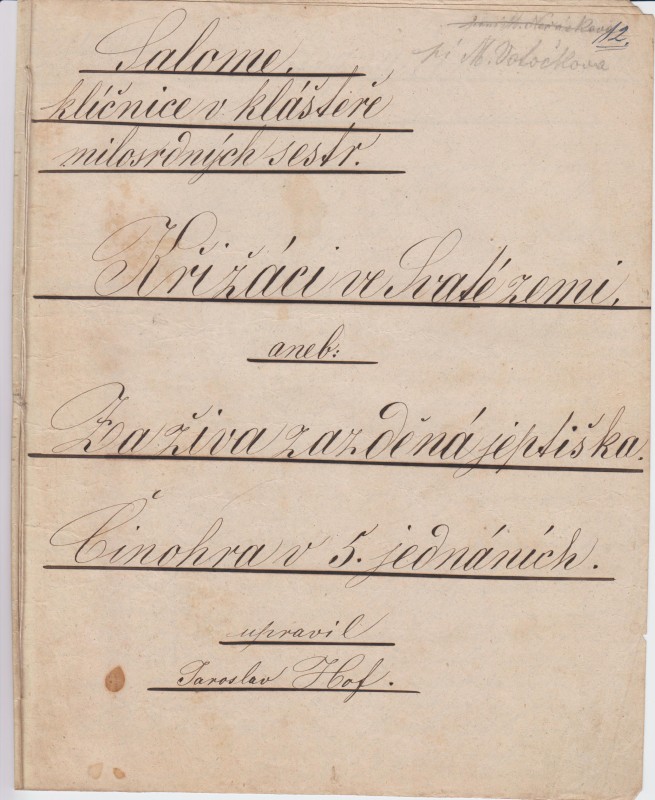 12.
pí M. Votočkova
Salome,
klíčnice v klášteře
milosrdných sestr.
Křižáci ve Svaté zemi,
aneb:
Za živa zazděná jeptiška.
Činohra v 5. jednáních.
upravil
Jaroslav Hof.